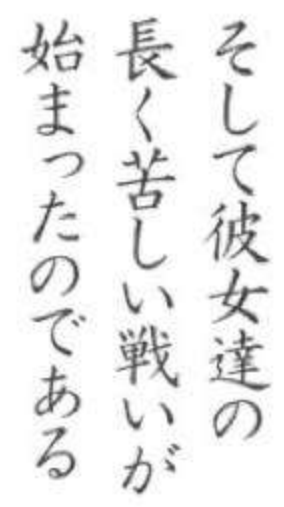 そして彼女達の
長く苦しい戦いが
始まったのである